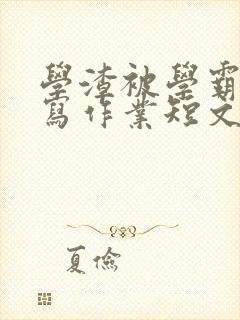 學渣被學霸
寫作業短文
夏儉